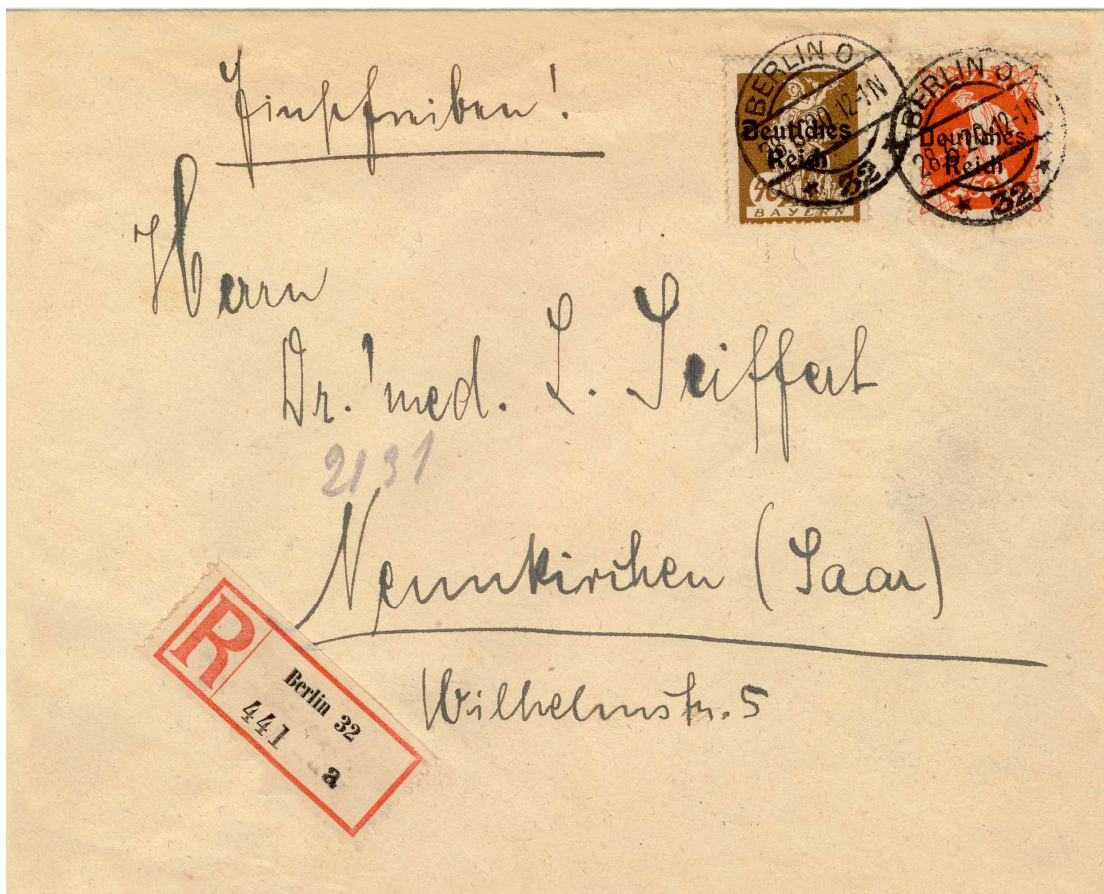 Einschreiben!
BERLIN O.
28.6.20 12-1N
* 32 *
Deutsches
Reich
40
BAYERN
BERLIN O.
28.6.20 12-1N
* 32 *
Deutsches
Reich
50
Herrn
Dr. med. L. Seiffert
2131
Neunkirchen (Saar)
Wilhelmstr. 5
R
Berlin 32
441
a